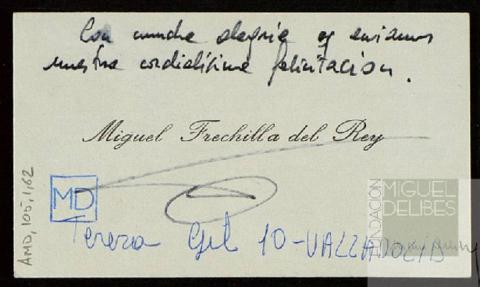 Con mucha alegría os enviamos
nuestra cordialísima felicitación.
Miguel Frechilla del Rey
MD
Teresa Gil 10-VALLADOLID
AMD, 105, 1, 62
FUNDACIÓN
MIGUEL
DELIBES